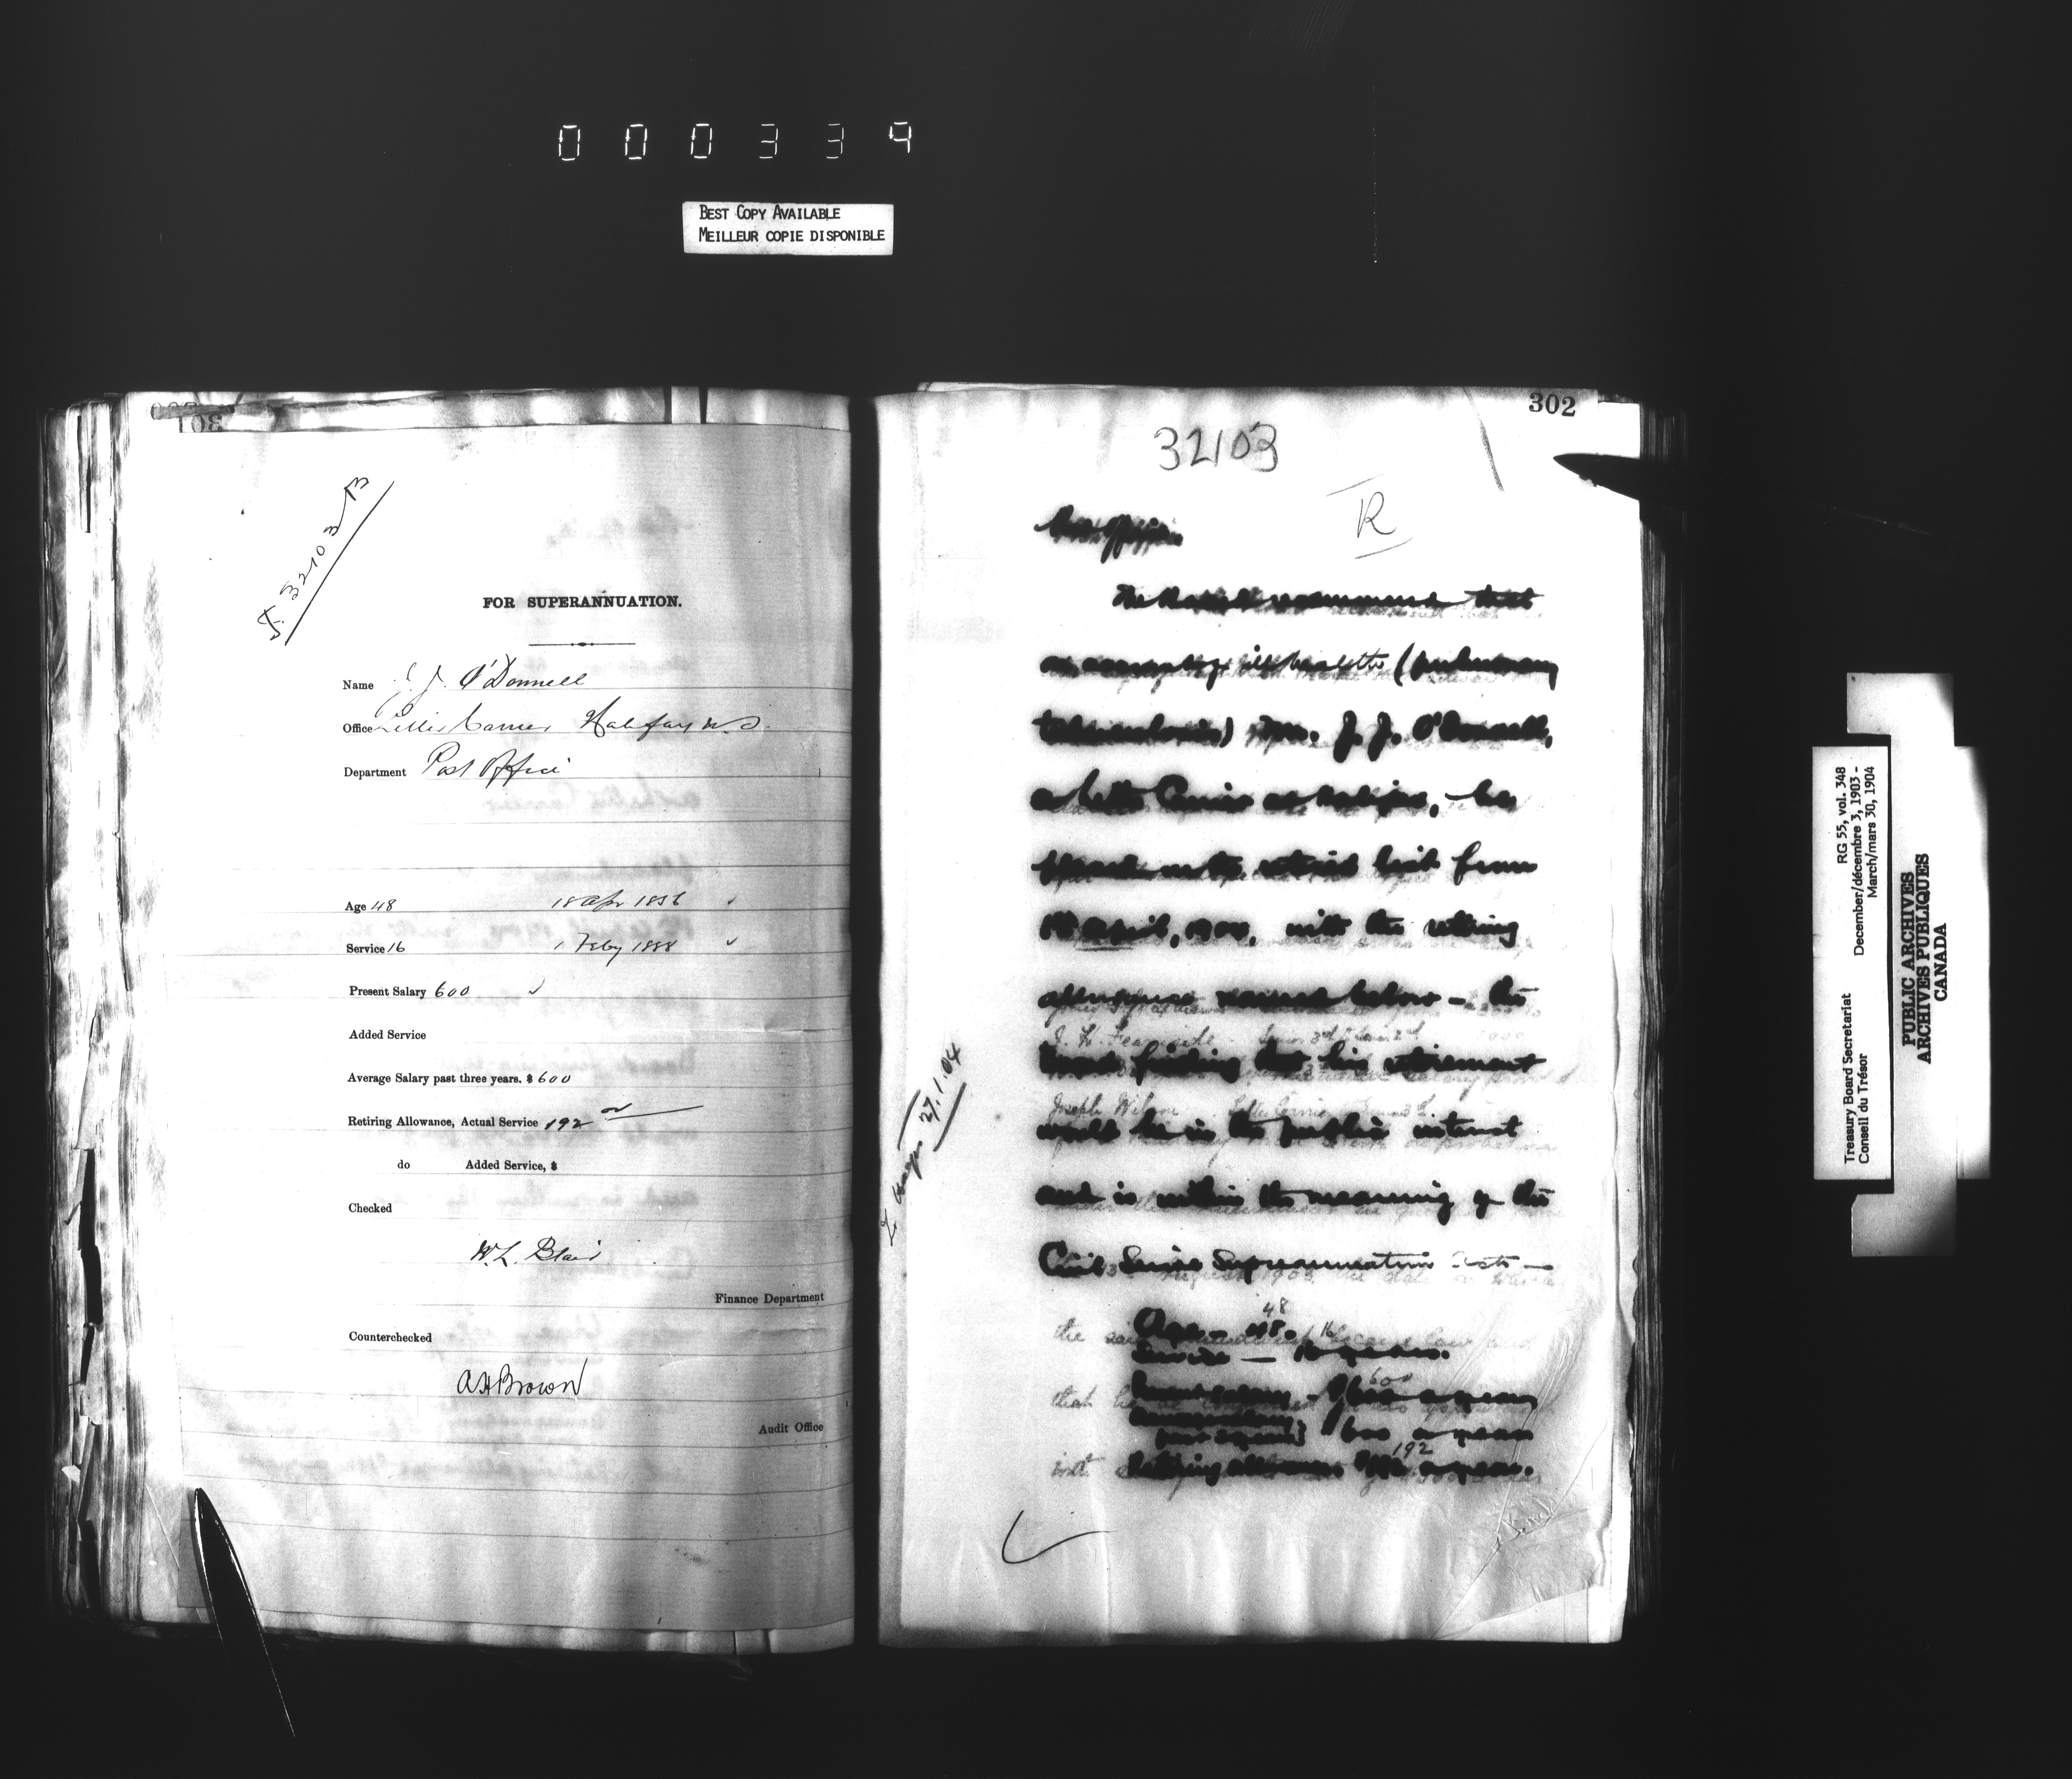 000339
BEST COPY AVAILABLE
MEILLEUR COPIE DISPONIBLE
301
F. 32103
FOR SUPERANNUATION.
Name J. J. O'Donnell
Office Letter Carrier Halifax N.S.
Department Post Office
Age 48 18 Apr 1856
Service 16 1 Feby 1888
Present Salary 600
Added Service
Average Salary past three years. $ 600
Retiring Allowance, Actual Service 192
do Added Service, $
Checked
W. L. Blair
Finance Department
Counterchecked
A H Brown
Audit Office
302
32103
R
Post Office
The Board recommend that
on account of ill health (pulmonary
tuberculosis) Mr. J. J. O'Donnell,
a Letter Carrier at Halifax, be
placed on the retired list from
1st April, 1904, with the retiring
allowance named below — the
Board finding that his retirement
would be in the public interest
and is within the meaning of the
Civil Service Superannuation Acts —
Age — 48. 48
Service — 16 years. 16
Present salary — $600 a year 600
600 a year
Retiring allowance $192 a year. 192
27.1.04
RG 55, vol. 348
December/décembre 3, 1903 -
March/mars 30, 1904
Treasury Board Secretariat
Conseil du Trésor
PUBLIC ARCHIVES
ARCHIVES PUBLIQUES
CANADA